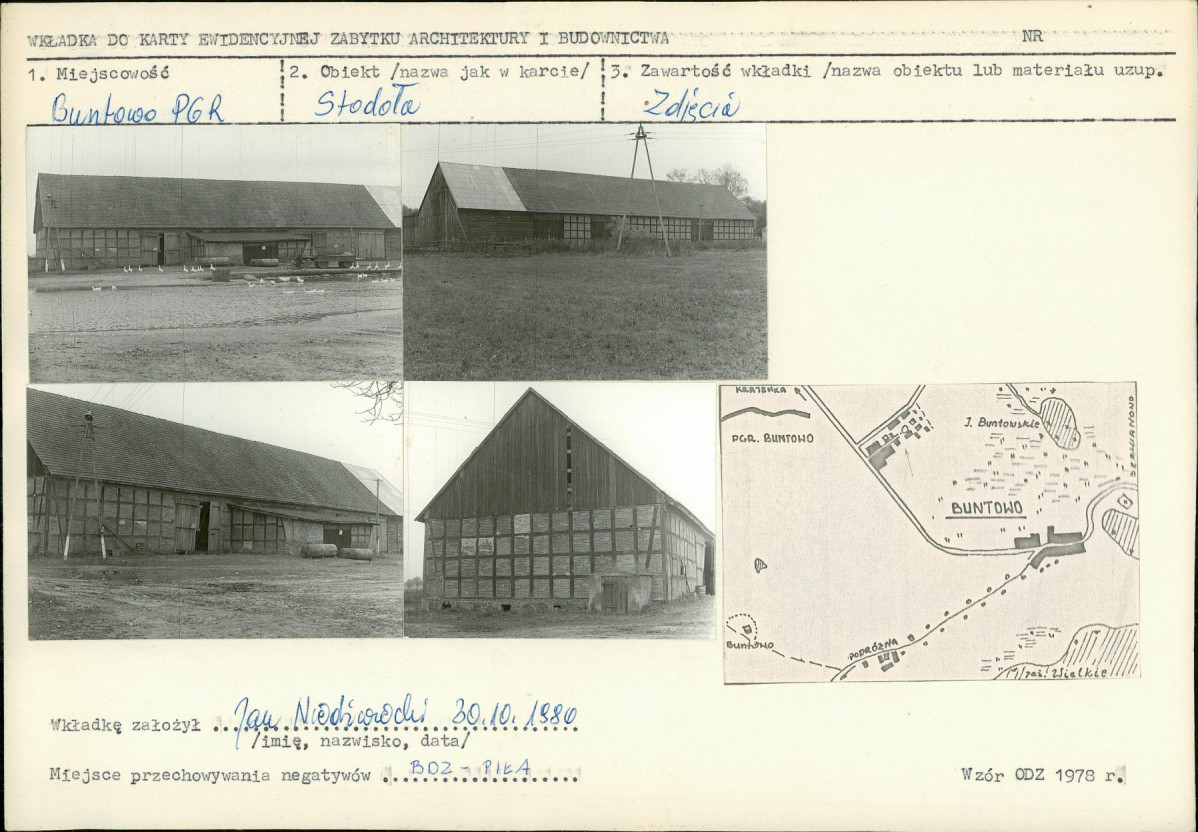 WKŁADKA DO KARTY EWIDENCYJNEJ ZABYTKU ARCHITEKTURY I BUDOWNICTWA NR
1. Miejscowość
Buntowo PGR
2. Obiekt /nazwa jak w karcie/
Stodoła
3. Zawartość wkładki /nazwa obiektu lub materiału uzup.
Zdjęcia
KRAJENKA
PGR. BUNTOWO
J. Buntowskie
BUNTOWO
BUNTOWO
PODRÓŻNA
Wielkie
Wkładkę założył Jan 30.10.1980
/imię, nazwisko, data/
Miejsce przechowywania negatywów BDZ - PIŁA
Wzór ODZ 1978 r.